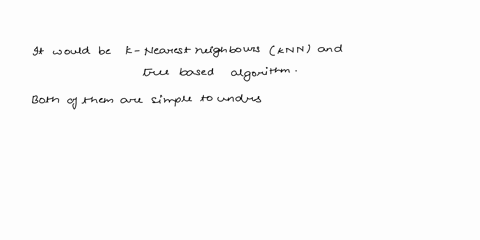 It would be K-Nearest neighbours (KNN) and
tree based algorithm.
Both of them are simple to undrs